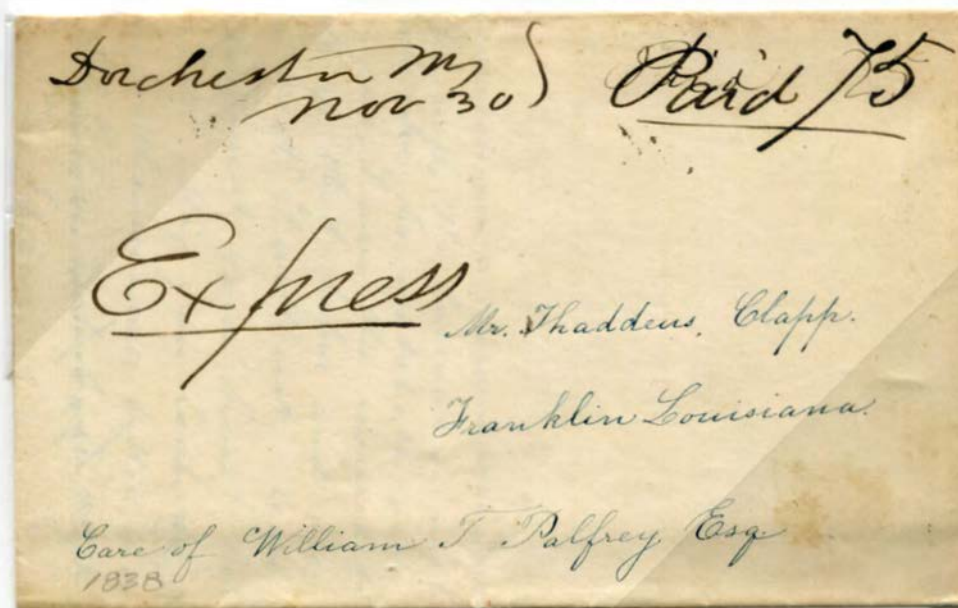 Dorchester Ms } Paid 75
Nov 30
Express
Mr. Thaddeus, Clapp.
Franklin Louisiana.
Care of William T Palfrey Esq
1838